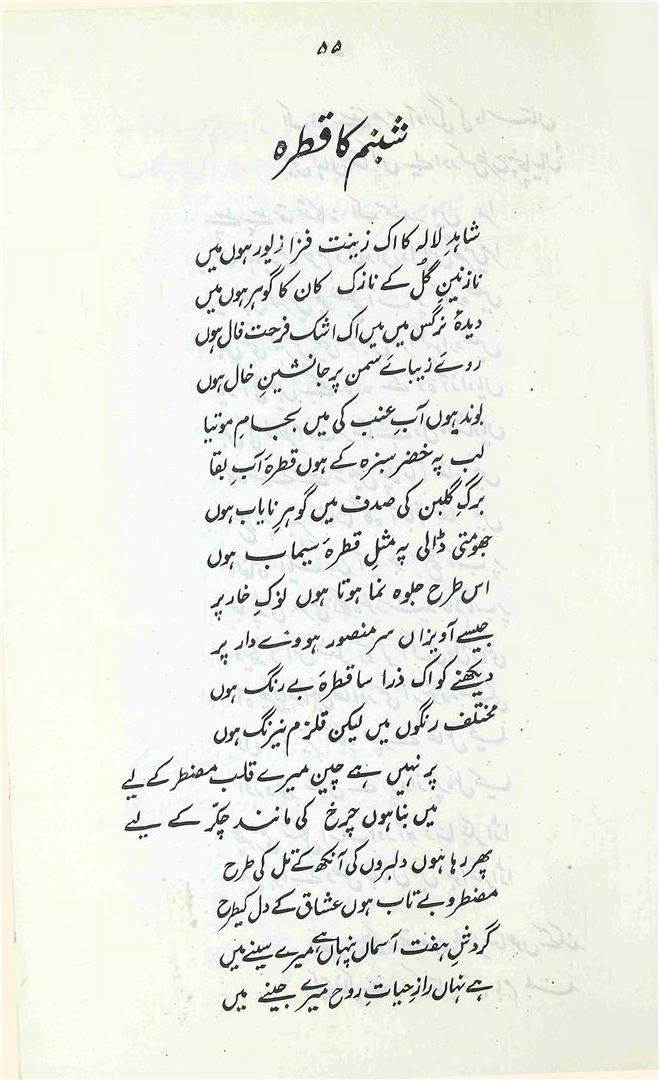 ۵۵
شبنم کا قطرہ
شاہدِ لالہ کا اک زینت فزا زیور ہوں میں
نازنینِ گُل کے نازک کان کا گوہر ہوں میں
دیدۂ نرگس میں میں اک اشک فرحت فال ہوں
روئے زیبائے سمن پر جانشینِ خال ہوں
بوند ہوں آبِ عنب کی میں بجامِ موتیا
لب پہ خضرِ سبزہ کے ہوں قطرۂ آبِ بقا
برگِ گلبن کی صدف میں گوہرِ نایاب ہوں
جھومتی ڈالی پہ مثلِ قطرۂ سیماب ہوں
اس طرح جلوہ نما ہوتا ہوں نوکِ خار پر
جیسے آویزاں سرِ منصور ہووے دار پر
دیکھنے کو اک ذرا سا قطرۂ بے رنگ ہوں
مختلف رنگوں میں لیکن قلزم نیرنگ ہوں
پر نہیں ہے چین میرے قلب مضطر کے لیے
میں بنا ہوں چرخ کی مانند چکّر کے لیے
پھر رہا ہوں دلبروں کی آنکھ کے تل کی طرح
مضطر و بے تاب ہوں عشاق کے دل کیطرح
گردشِ ہفت آسماں پنہاں ہے میرے سینے میں
ہے نہاں رازِ حیاتِ روح میرے جینے میں